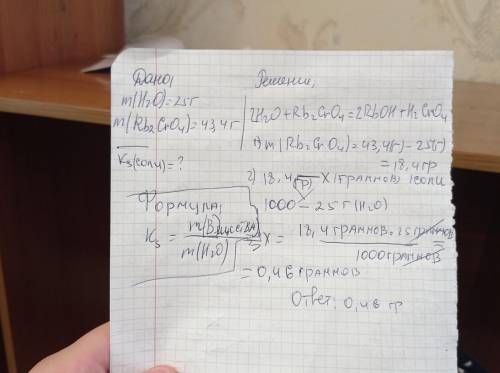 Дано,
m(H₂O)=25г
m(Rb₂CrO₄)=43,4г
Ks(соли)=?
Решение,
2H₂O+Rb₂CrO₄=2RbOH+H₂CrO₄
1) m(Rb₂CrO₄)=43,4(г)-25(г)
=18,4гр
2) 18,4(гр) X(граммов) соли
1000 - 25г(H₂O)
X = 18,4граммов·25граммов =
1000граммов
=0,46граммов
Ответ: 0,46 гр
Формула,
Ks = m(Вещества)
m(H₂O)